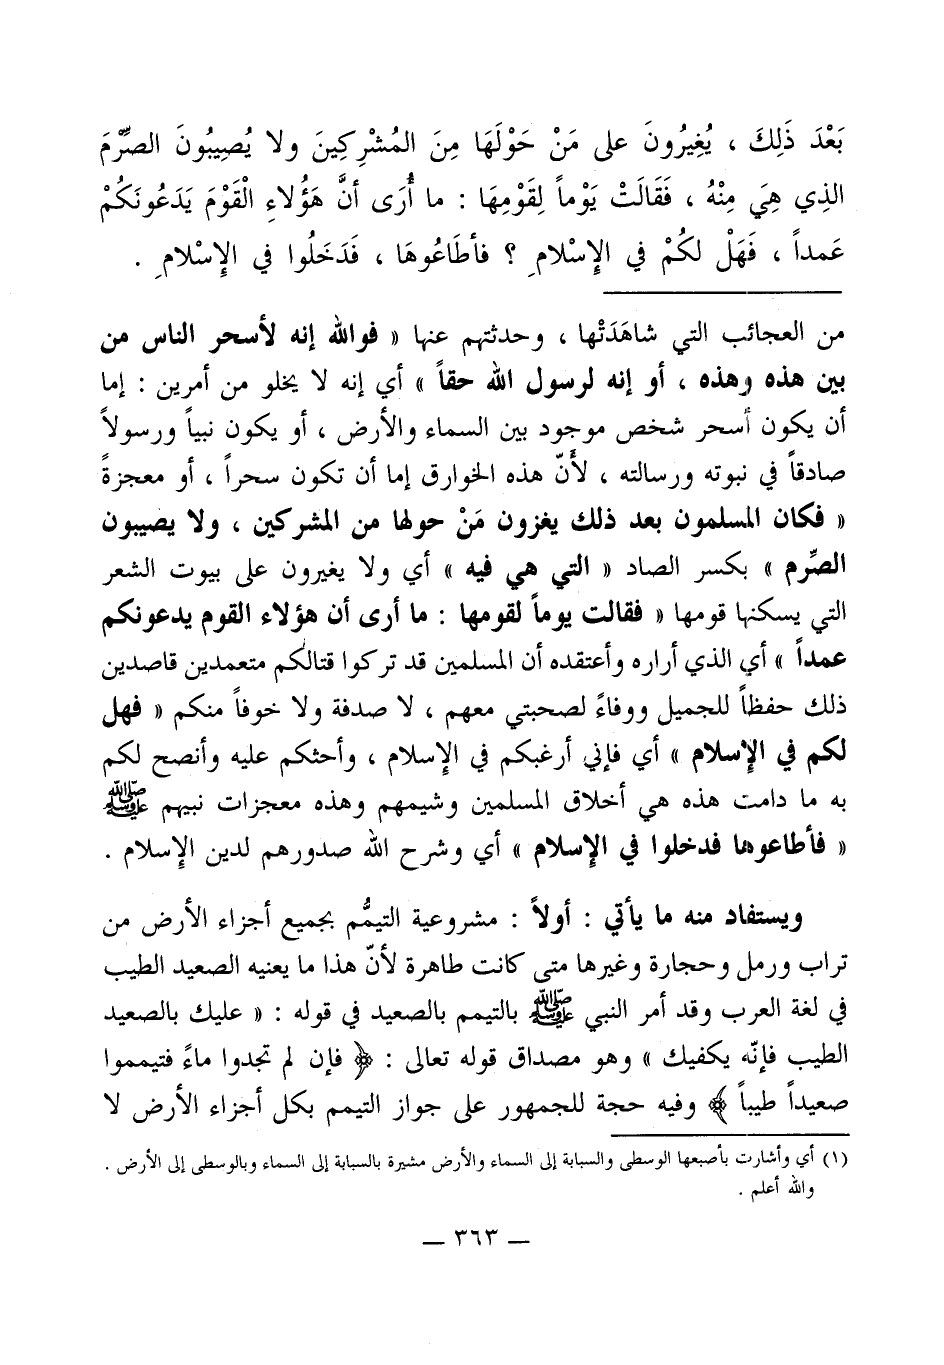 بَعْدَ ذَلِكَ ، يُغِيرُونَ على مَنْ حَوْلَهَا مِنَ المُشْرِكِينَ ولا يُصِيبُونَ الصِّرْمَ
الذِي هِيَ مِنْهُ ، فَقَالَتْ يَوْماً لِقَوْمِهَا : ما أُرَى أنَّ هَؤُلاءِ الْقَوْمَ يَدَعُونَكُمْ
عَمداً ، فَهَلْ لكُمْ في الإِسْلامِ ؟ فأطَاعُوهَا ، فَدَخَلُوا في الإِسْلامِ .
من العجائب التي شاهَدَتْها ، وحدثتهم عنها « فوالله إنه لأسحر الناس من
بين هذه وهذه ، أو إنه لرسول الله حقاً » أي إنه لا يخلو من أمرين : إما
أن يكون أسحر شخص موجود بين السماء والأرض ، أو يكون نبياً ورسولاً
صادقاً في نبوته ورسالته ، لأَنّ هذه الخوارق إما أن تكون سحراً ، أو معجزةً
« فكان المسلمون بعد ذلك يغزون مَنْ حولها من المشركين ، ولا يصيبون
الصِّرم » بكسر الصاد « التي هي فيه » أي ولا يغيرون على بيوت الشعر
التي يسكنها قومها « فقالت يوماً لقومها : ما أرى أن هؤلاء القوم يدعونكم
عمداً » أي الذي أراره وأعتقده أن المسلمين قد تركوا قتالكم متعمدين قاصدين
ذلك حفظاً للجميل ووفاءً لصحبتي معهم ، لا صدفة ولا خوفاً منكم « فهل
لكم في الإِسلام » أي فإني أرغبكم في الإِسلام ، وأحثكم عليه وأنصح لكم
به ما دامت هذه هي أخلاق المسلمين وشيمهم وهذه معجزات نبيهم ﷺ
« فأطاعوها فدخلوا في الإِسلام » أي وشرح الله صدورهم لدين الإِسلام .
ويستفاد منه ما يأتي : أولاً : مشروعية التيمُّم بجميع أجزاء الأرض من
تراب ورمل وحجارة وغيرها متى كانت طاهرة لأنّ هذا ما يعنيه الصعيد الطيب
في لغة العرب وقد أمر النبي ﷺ بالتيمم بالصعيد في قوله : « عليك بالصعيد
الطيب فإنّه يكفيك » وهو مصداق قوله تعالى : ﴿ فإن لم تجدوا ماءً فتيمموا
صعيداً طيباً ﴾ وفيه حجة للجمهور على جواز التيمم بكل أجزاء الأرض لا
(١) أي وأشارت بأصبعها الوسطى والسبابة إلى السماء والأرض مشيرة بالسبابة إلى السماء وبالوسطى إلى الأرض .
والله أعلم .
— ٣٦٣ —